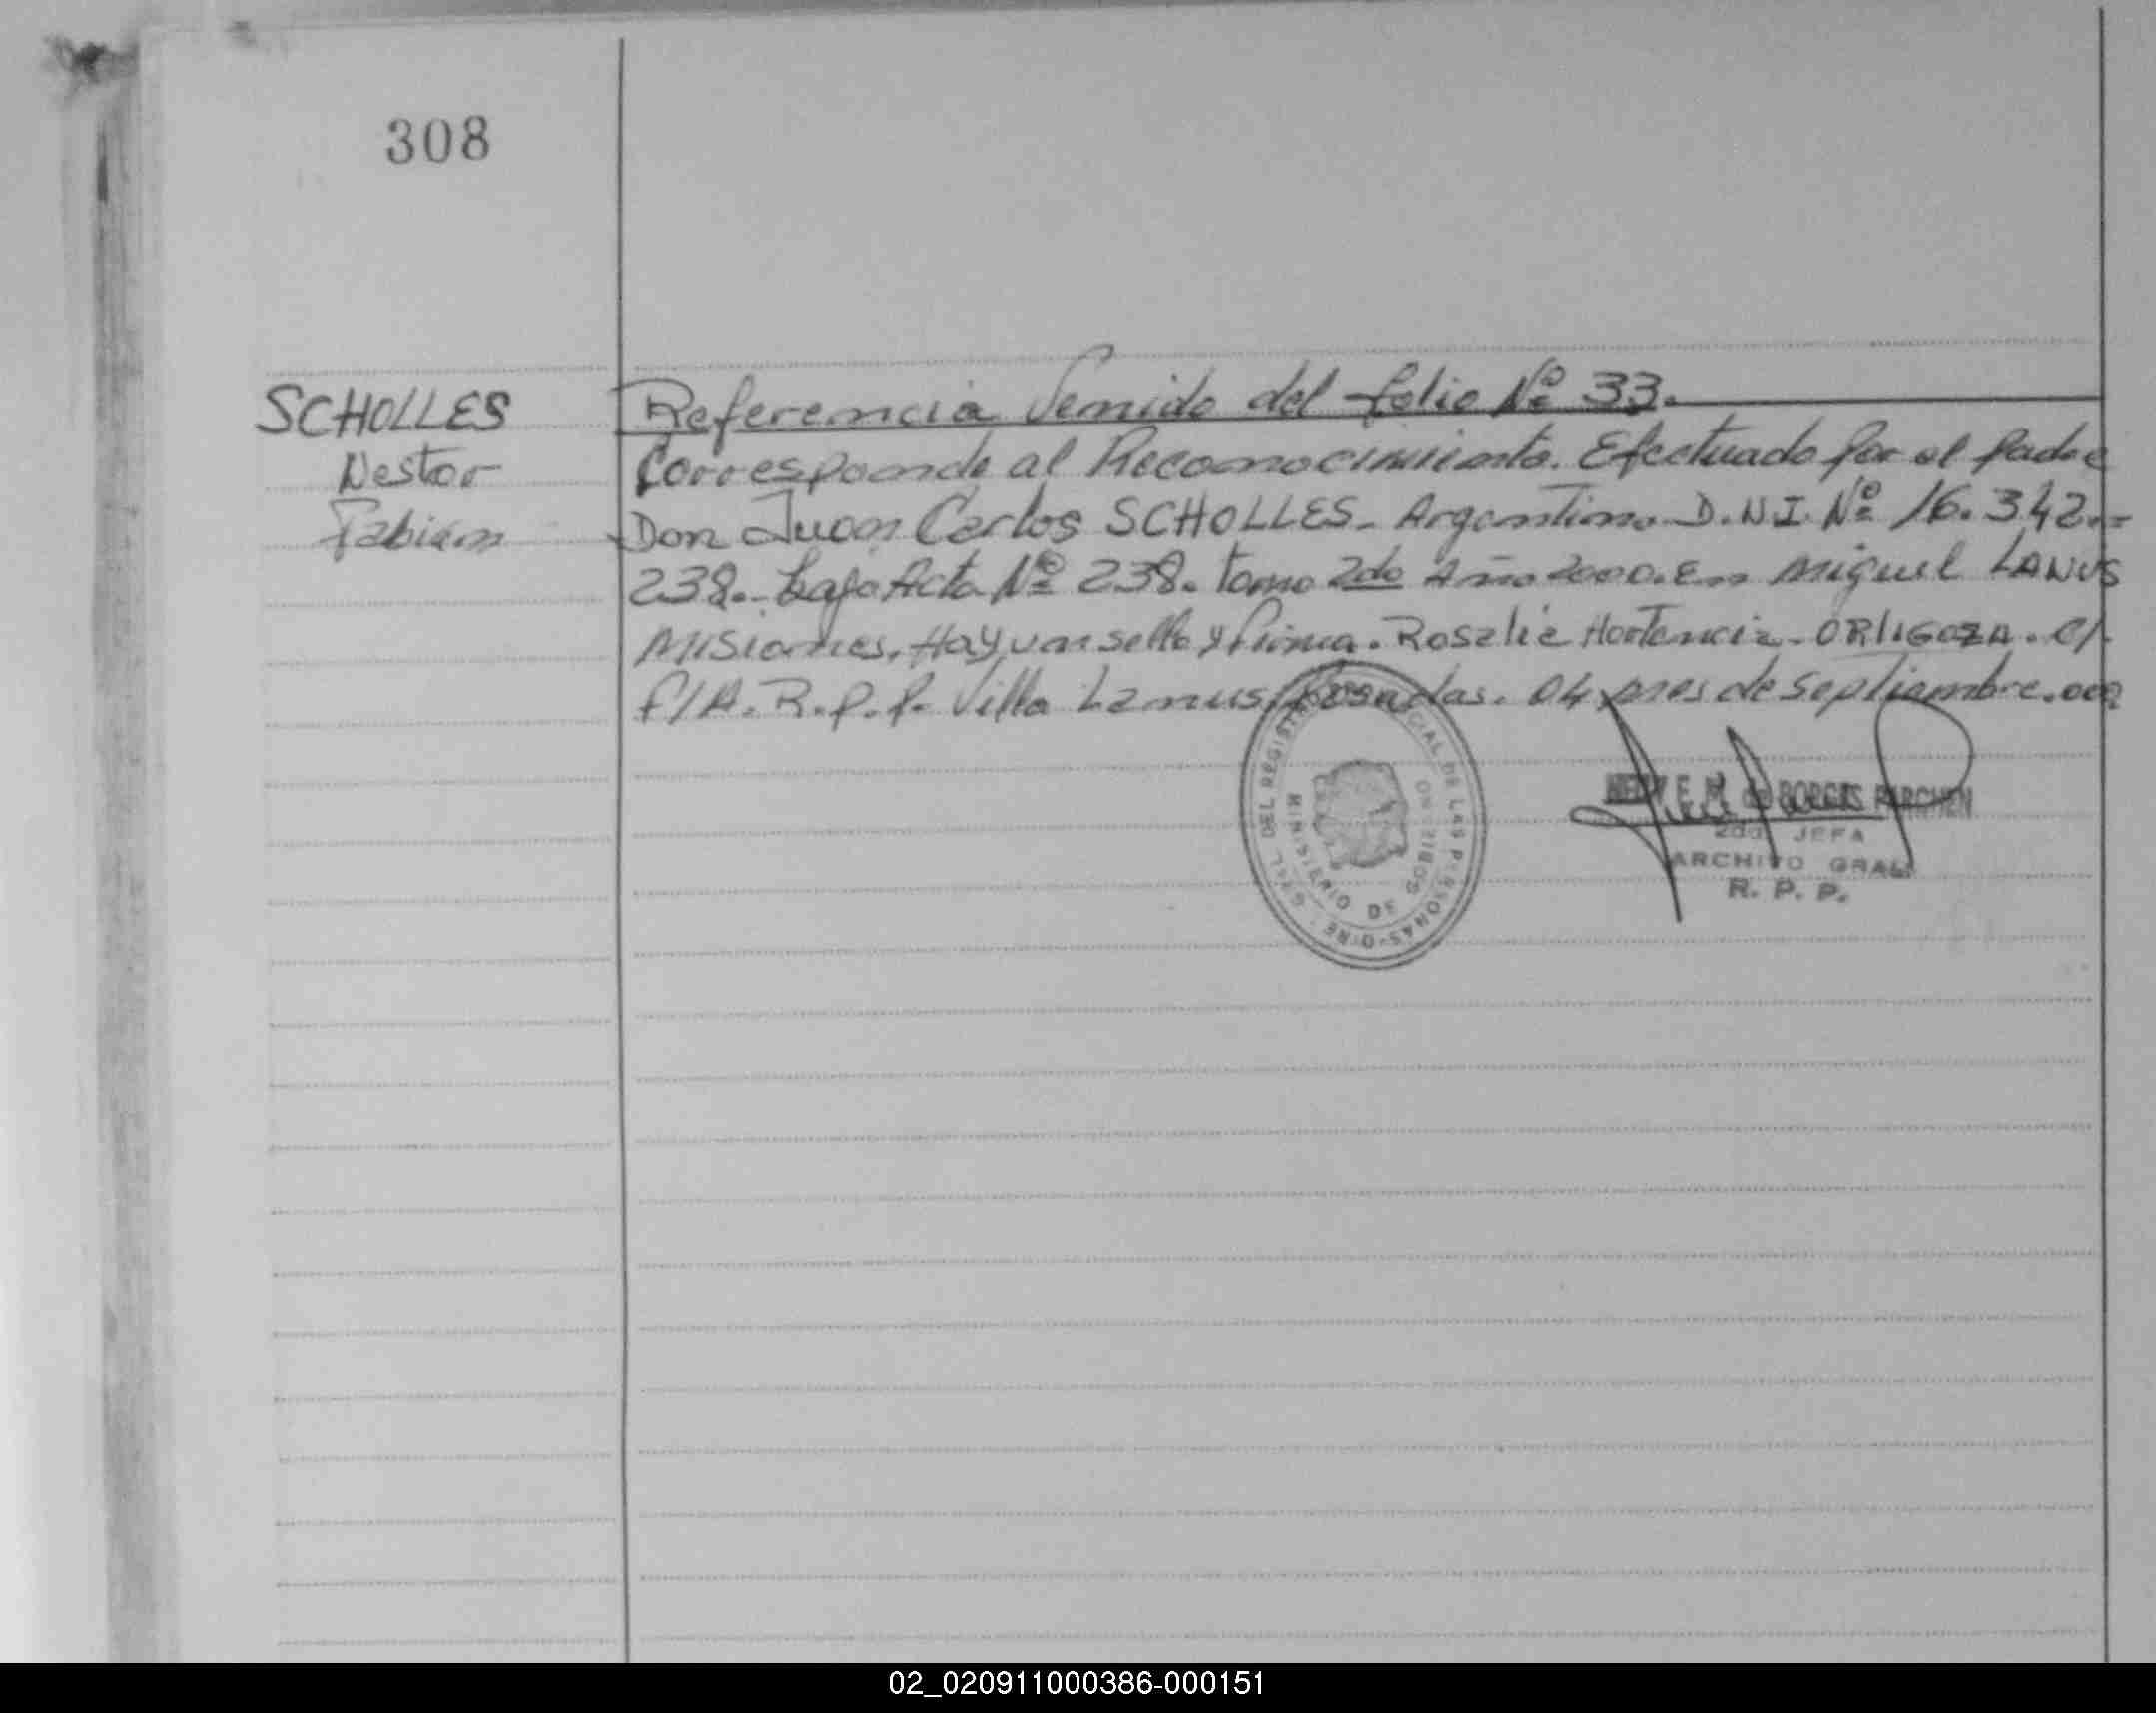 308
SCHOLLES
Nestor
Fabian
Referencia Venido del folio Nº 33.
Corresponde al Reconocimiento. Efectuado por el padre
Don Juan Carlos SCHOLLES - Argentino D.N.I. Nº 16.342.=
238.- bajo Acta Nº 238. tomo 2do Año 2000. En Miguel LANUS
Misiones. Hay un sello y firma. Rosalia Hortencia - ORLIGOZA. C/
f/A. R.P.P. Villa Lanus, Posadas. 04 mes de septiembre.
DEL REGISTRO PROVINCIAL DE LAS PERSONAS
MINISTERIO DE GOBIERNO
E. M. de BORGES PARCHEN
2da JEFA
ARCHIVO GRAL
R. P. P.
02_020911000386-000151